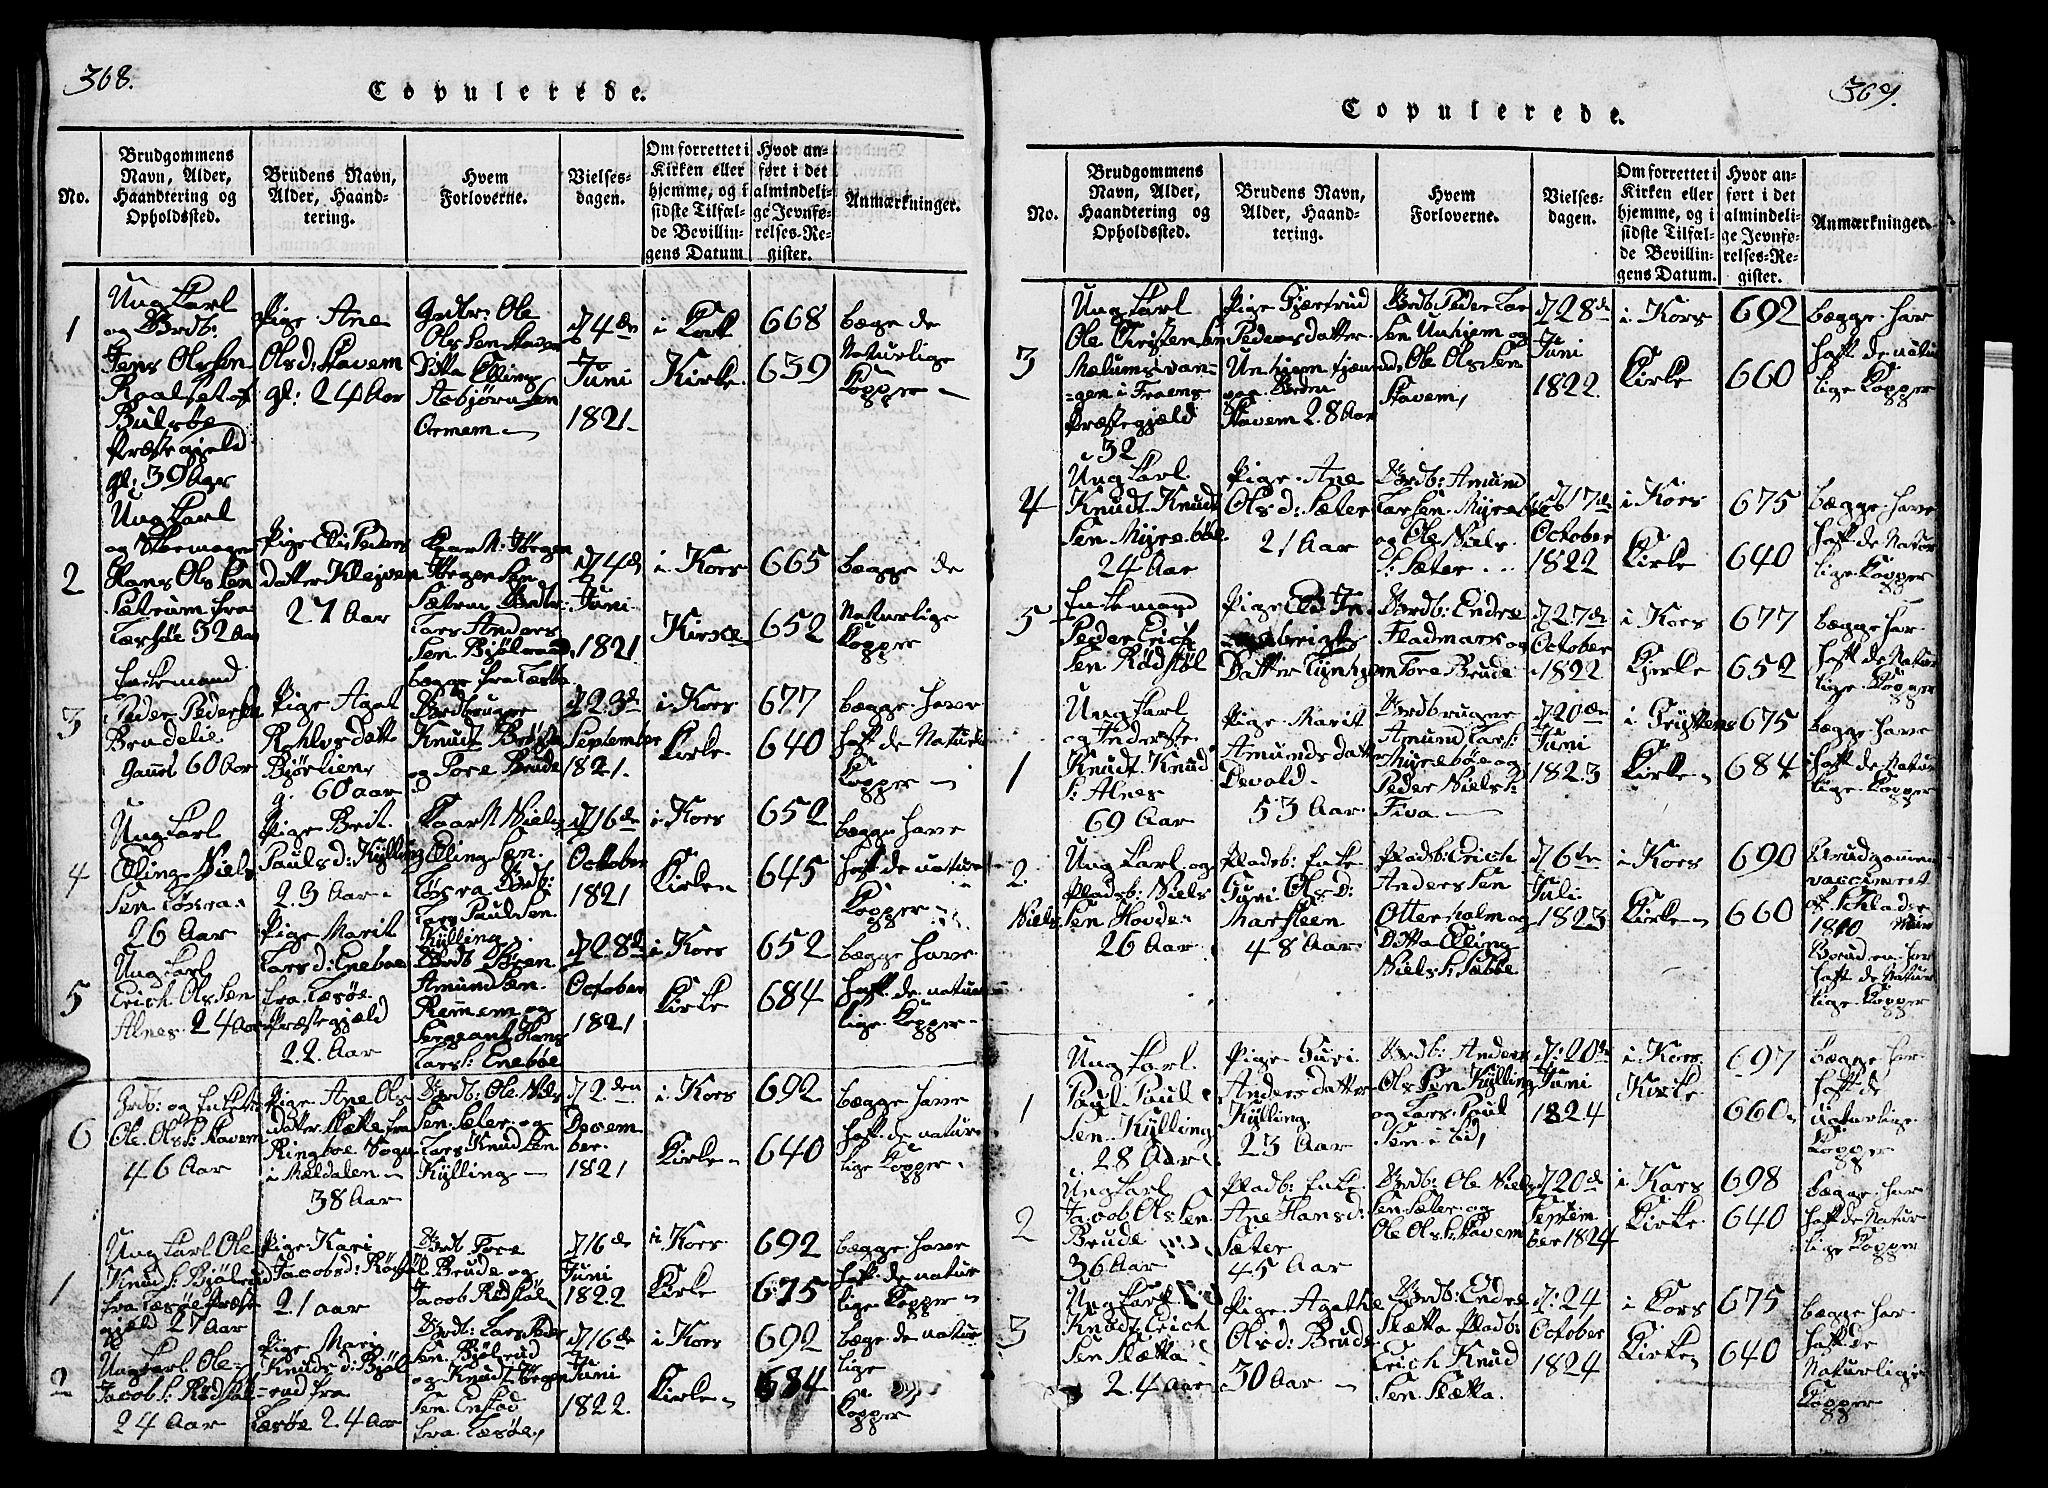 368.
Copulerede.
No.
Brudgommens Navn, Alder, Haandtering og Opholdssted.
Brudens Navn, Alder, Haandtering.
Hvem Forloverne.
Vielsesdagen.
Om forrettet i Kirken eller hjemme, og i sidste Tilfælde Bevillingens Datum
Hvor anført i det almindelige Jevnførelses-Register.
Anmærkninger.
1
Ung Karl
og Brdb:
Jens Olssen
Præstegield
gl: 30 Aar
Pige Ane
Olsd: Stavem
gl: 24 Aar
Ole
Olssen Stavem
Ditto Elling
Asbjørnsen
Ormem
d 4de
Juni
1821
i Kors
Kirke
668
639
bege de
Naturlige
Kopper
2
Ung Karl
Hans Olssen
Sætrum fra
32 Aar
Pige Elis Peders
datter Klejven
27 Aar
Jørgen
Jørgensen
Sætrum
Lars Anders
sen Bjølraad
bægge fra
d 4de
Juni
1821
i Kors
Kirke
665
652
bægge de
Naturlige
Kopper
3
Enkemand
Peder Peders
Brudelie
Gaml 60 Aar
Pige Agat
Bjørlien
g. 60 aar
Brdbrugere
Knudt Brude
og Tore Brude
d 23d
September
1821.
i Kors
Kirke
677
640
bægge have
haft de Naturli
Kopper
4
Ung Karl
Elling Niels
sen
26 Aar
Pige Brit
Paulsd: Kylling
23 Aar
Niels
Ellingsen
Lars Paulsen
Kylling
d 16de
October
1821
i Kors
Kirke
652
645
bægge have
haft de natur
Kopper
5
Ung Karl
Erich Olssen
Alnes 24 Aar
Pige Marit
Larsd: Eneboe
fra Læsøe
Præstegjeld
22 Aar
Brdb Søren
Amundsen
Remmem og
Sergeant Hans
Lars: Eneboe
d 28d
October
1821
i Kors
Kirke
652
684
bægge have
haft de natur
lige Kopper
6
Ole Ols: Stavem
46 Aar
Pige Ane Ols
datter Slette fra
Ringboe Sogn
38 Aar
Brdb: Ole Niels
sen Sæter og
Lars Knudsen
Kylling
d 2den
Decem
ber
1821
i Kors
Kirke
692
640
bægge have
haft de natur
lige Kopper
1
Ung Karl Ole
Knuds: Bjølraad
fra Læsøe Præste
gjeld 27 Aar
Pige Kari
Jacobsd:
21 aar
Brdb Tore
Brude og
Jacob Rødstøl
d 16de
Juni
1822
i Kors
Kirke
692
675
bægge have
haft de natur
lige Kopper
2
Ung Karl Ole
Jacobs: Rødstøl
24 Aar
Pige Mari
Knudsd: Bjøl
raad fra
Læsøe 24 Aar
Brdb: Lars Peder
sen Bjølraad
og Knudt Jørgen
sen Enstad
fra Læsøe
d 16de
Juni
1822.
i Kors
Kirke
692
684
bege de natur
lige
Kopper
369.
Copulerede.
No.
Brudgommens Navn, Alder, Haandtering og Opholdssted.
Brudens Navn, Alder, Haandtering.
Hvem Forloverne.
Vielsesdagen.
Om forrettet i Kirken eller hjemme, og i sidste Tilfælde Bevillingens Datum.
Hvor anført i det almindelige Jevnførelses-Register.
Anmærkninger.
3
Ung Karl
Ole Christensen
Mælumsvan-
-gen i
Præstegjæld
32
Pige Gjertrud
Pedersdatter
Unhjem
Stavem 28 Aar
Brdb: Peder Lar
sen Unhjem og
Ole Olssen
Stavem
d 28de
Juni
1822.
i Kors
Kirke
692
660
bægge har
haft de natur
lige Kopper
4
Ung Karl
Knudt Knudt
sen Myrebøe
24 Aar
Pige Ane
Olsd: Sæter
21 Aar
Brdb: Amund
Larsen Myrebøe
og Ole Niels
s: Sæter
d 17de
October
1822
i Kors
Kirke
675
640
bægge have
haft de Natur
lige Kopper
5
Enkemand
Peder Erich
sen Rødstøl
Datter
Brdb: Endre
Fladmark og
Tore Brude
d 27de
October
1822
i Kors
Kirke
677
652
bægge har
haft de Natur
lige Kopper
1
Ung Karl
og Inderste
Knudt Knud
s: Alnes
69 Aar
Pige Marit
Amundsdatter
Devold
53 Aar
Brdbrugere
Amund Lars:
Myrebøe og
Peder Niels:
Fiva
d 20de
Juni
1823
i Gryttens
Kirke
675
684
bægge have
haft de Natur
lige Kopper
2.
Ung Karl og
Pladsb: Niels
Nielssen Hovde
26 Aar
Pladsb: Enke
Guri Olsd:
Marsteen
48 Aar
Pladsb: Erich
Anderssen
Otterholm og
Ditto Elling
Niels:
d 6te
Juli
1823
i Kors
Kirke
690
660
Brudgommen
vaccineret
1810
Bruden har
haft de Natur
lige Kopper
1
Ung Karl
Paul Paul
sen Kylling
28 Aar
Pige Guri
Andersdatter
Kylling
23 Aar
Brdb: Anders
Olssen Kylling
og Lars Paul
sen
d: 20de
Juni
1824
i Kors
Kirke
697
660
bægge har
haft de
naturlige
Kopper
2
Ung Karl
Jacob Olssen
Brude
36 Aar
Pladb: Enke
Ane Hansd:
Sæter
45 Aar
Brdb: Ole Niels
sen Sæter og
Ole Ols: Stavem
d 20de
Septem
ber 1824
i Kors
Kirke
698
640
bægge har
haft de Natur
lige Kopper
3
Ung Karl
Knudt Erich
sen Slætta
24 Aar
Pige Agathe
Olsd: Brude
30 Aar
Brdb: Endre
Slætta Pladb:
Erich Knud
sen Slætta.
d: 24
October
1824
i Kors
Kirke
675
640
bægge har
haft de
Naturlige
Kopper